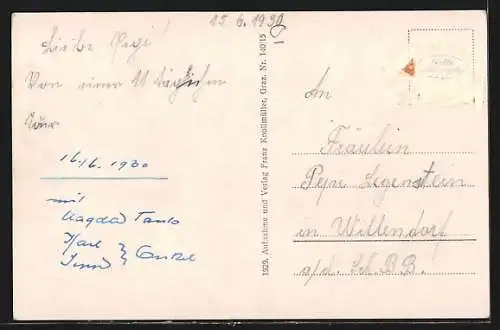 15.6.1930
Liebe Pepi!
Von einer 11 täglichen
Tour
16./6. 1930
mit
Magda Tante
Karl }
} Onkel
1929. Aufnahme und Verlag Franz Knollmüller, Graz. Nr. 140/15
An
Fräulein
Pepi Legenstein
in Willendorf
a/d. Sch.B.B.